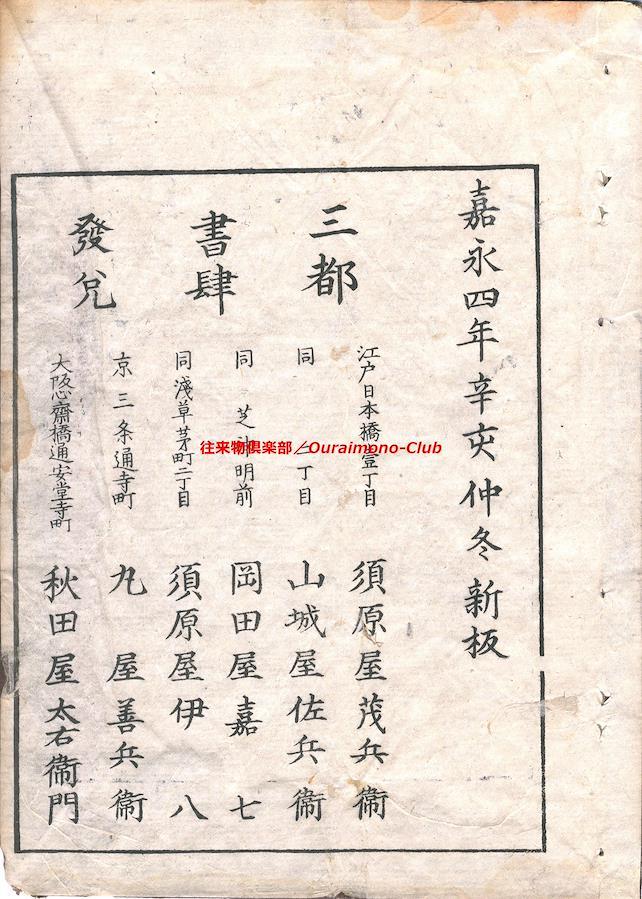 嘉永四年辛亥仲冬新板
三都
書肆
發兌
江戸日本橋壹丁目 須原屋茂兵衞
同 二丁目 山城屋佐兵衞
同 芝神明前 岡田屋嘉七
同淺草茅町二丁目 須原屋伊八
京三条通寺町 丸屋善兵衞
大阪心齋橋通安堂寺町 秋田屋太右衞門
往来物倶楽部/Ouraimono-Club